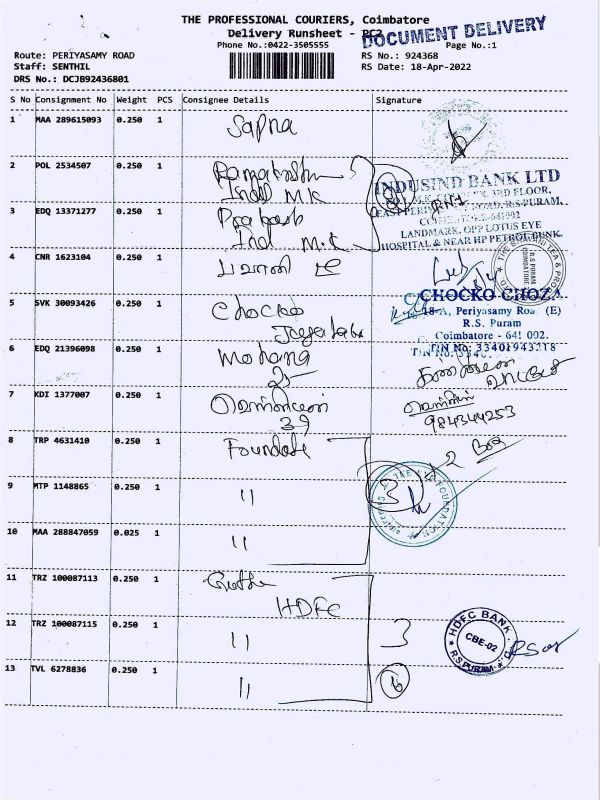 THE PROFESSIONAL COURIERS, Coimbatore
Delivery Runsheet - PC2
DOCUMENT DELIVERY
Phone No.:0422-3505555
Page No.:1
Route: PERIYASAMY ROAD
RS No.: 924368
Staff: SENTHIL
RS Date: 18-Apr-2022
DRS No.: DCJB92436801
S No Consignment No Weight PCS Consignee Details Signature
1 MAA 289615093 0.250 1 Sapna
2 POL 2534507 0.250 1
Ind M.K
INDUSIND BANK LTD
3RD FLOOR,
R.S.PURAM,
3 EDQ 13371277 0.250 1 Prakash
Ind M.K
LANDMARK, OPP LOTUS EYE
HOSPITAL & NEAR HP PETROL BUNK.
4 CNR 1623104 0.250 1 பவானி
R.S PURAM
COIMBATORE
5 SVK 30093426 0.250 1 Chocko
CHOCKO CHOZA
18-A, Periyasamy Road (E)
R.S. Puram
Coimbatore - 641 002.
TIN No: 33401943218
6 EDQ 21396098 0.250 1 Mohana
25
7 KDI 1377007 0.250 1
39
984344253
8 TRP 4631410 0.250 1
9 MTP 1148865 0.250 1 "
3
THE EYE FOUNDATION
10 MAA 288847059 0.025 1 "
11 TRZ 100087113 0.250 1
HDFC
12 TRZ 100087115 0.250 1 "
3
HDFC BANK
CBE-02
R S PURAM
13 TVL 6278836 0.250 1 "
6